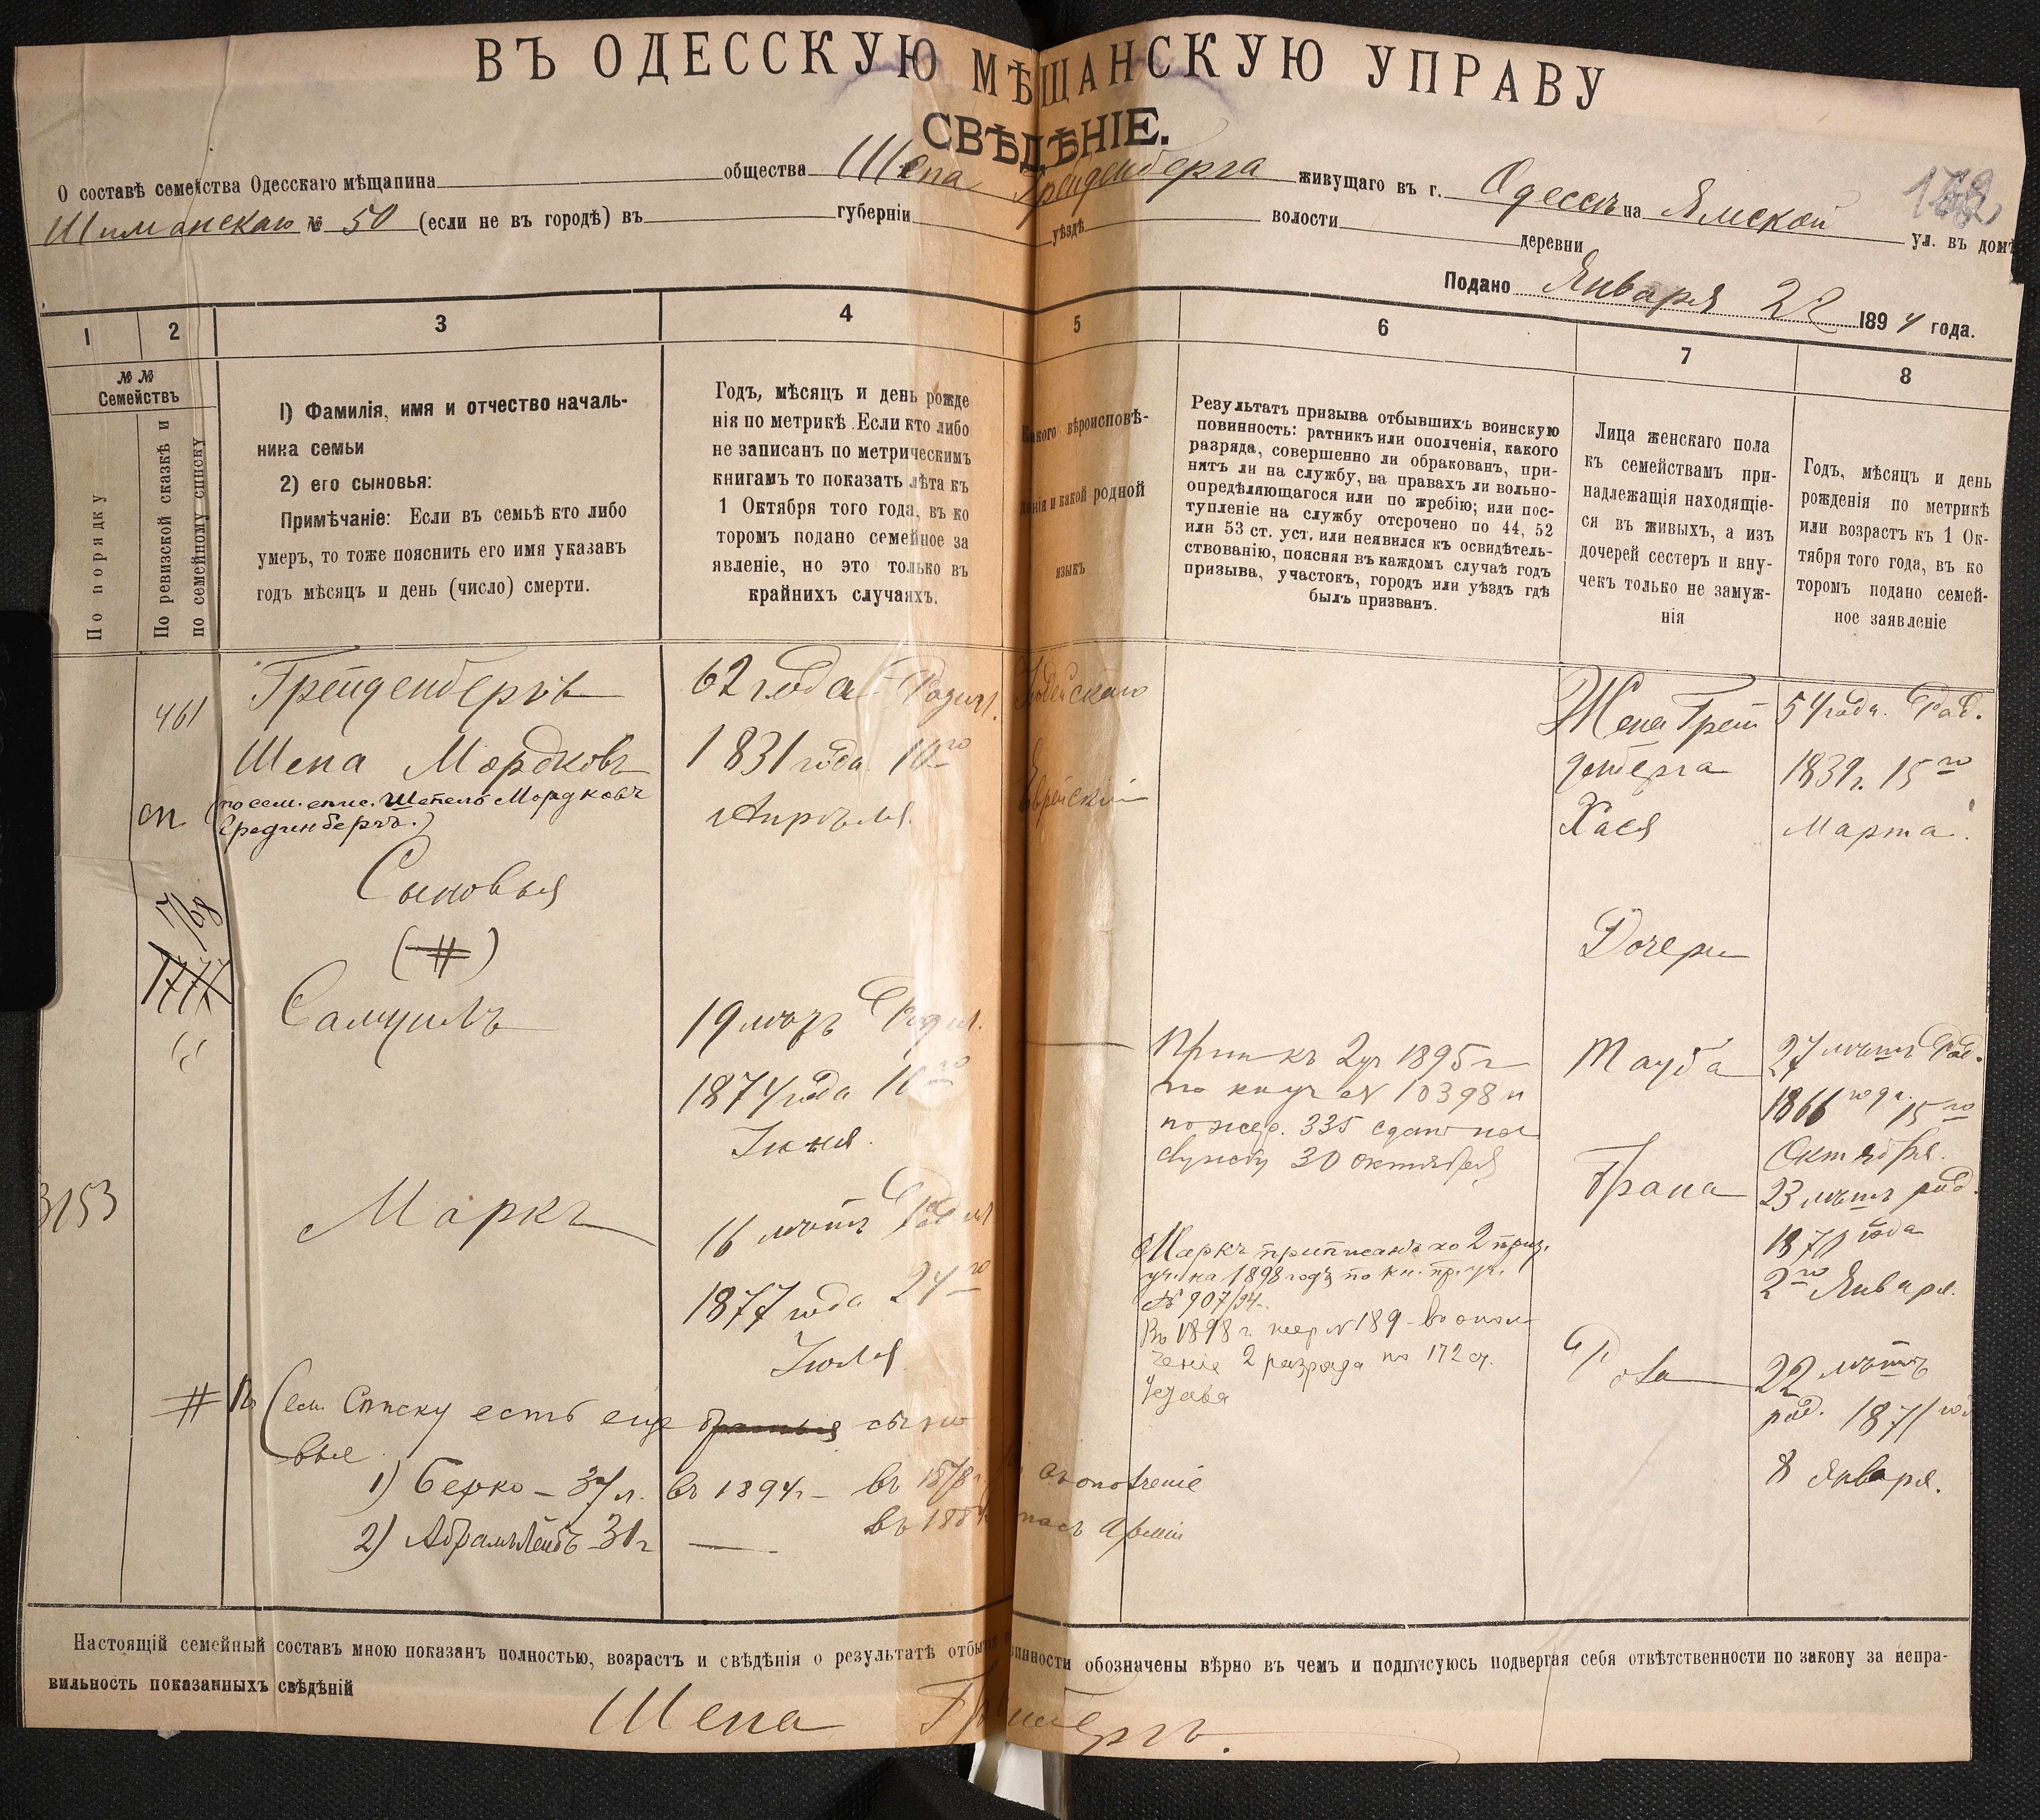 ВЪ ОДЕССКУЮ МѢЩАНСКУЮ УПРАВУ
СВѢДѢНІЕ.
О составѣ семейства Одесскаго мѣщанина общества Шепа Грейденберга живущаго въ г. Одессѣ на Ямской ул. въ домѣ
Шиманскаго № 50 (если не въ городѣ) въ губерніи уѣздѣ волости деревни
Подано Января 22 1894 года.
1 2 3 4 5 6 7 8
№ №
Семействъ
По порядку
По ревизской сказкѣ и
по семейному списку
1) Фамилія, имя и отчество началь-
ника семьи
2) его сыновья:
Примѣчаніе: Если въ семьѣ кто либо
умеръ, то тоже пояснить его имя указавъ
годъ мѣсяцъ и день (число) смерти.
Годъ, мѣсяцъ и день рожде
нія по метрикѣ. Если кто либо
не записанъ по метрическимъ
книгамъ то показать лѣта къ
1 Октября того года, въ ко
торомъ подано семейное за
явленіе, но это только въ
крайнихъ случаяхъ.
Какого вѣроисповѣ-
данія и какой родной
языкъ
Результатъ призыва отбывшихъ воинскую
повинность: ратникъ или ополченія, какого
разряда, совершенно ли обракованъ, при-
нятъ ли на службу, на правахъ ли вольно-
опредѣляющагося или по жребію; или пос-
тупленіе на службу отсрочено по 44, 52
или 53 ст. уст. или неявился къ освидѣтель-
ствованію, поясняя въ каждомъ случаѣ годъ
призыва, участокъ, городъ или уѣздъ гдѣ
былъ призванъ.
Лица женскаго пола
къ семействамъ при-
надлежащія находящіе-
ся въ живыхъ, а изъ
дочерей сестеръ и вну-
чекъ только не замуж-
нія
Годъ, мѣсяцъ и день
рожденія по метрикѣ
или возрастъ къ 1 Ок-
тября того года, въ ко
торомъ подано семей-
ное заявленіе
461
Грейденбергъ
Шепа Мордковъ
сп (по сем. спис. Шепель Мордковъ
Грединбергъ.)
62 года Родил.
1831 года 10го
Апрѣля.
Іудейскаго
Еврейскій
Жена Грей
денберга
Хася
54 года. Род.
1839 г. 15го
Марта.
Сыновья
(#)
1768
1777
Дочери
Самуилъ
19 лѣтъ Родил.
1874 года 10го
Іюня.
Прип къ 2 уч 1895 г
по № 10398 и
по жер. 335 сданъ на
службу 30 октября
Тауба
27 лѣтъ Род.
1866 года 15го
Октября.
3153
Маркъ
16 лѣтъ Родил
1877 года 24го
Іюля
Маркъ приписанъ ко 2 приз.
уч. на 1898 годъ по кн. пр. уч.
№ 907/94.
Въ 1898 г. жер № 189 въ опол
ченіе 2 разряда по 172 ст.
Устава
Грана
23 лѣтъ род.
1870 года
2го Января.
22 лѣтъ
род. 1871 год
8 Января.
# По сем. Списку есть еще братья сыно
вья
1) Берко - 37 л. въ 1894 г. - въ 1878 г. въ ополченіе
2) Абрамъ Лейбъ 31 г — въ 188 запасъ арміи
Настоящій семейный составъ мною показанъ полностью, возрастъ и свѣдѣнія о результатѣ отбытія повинности обозначены вѣрно въ чемъ и подписуюсь подвергая себя отвѣтственности по закону за непра-
вильность показанныхъ свѣдѣній
Шепа